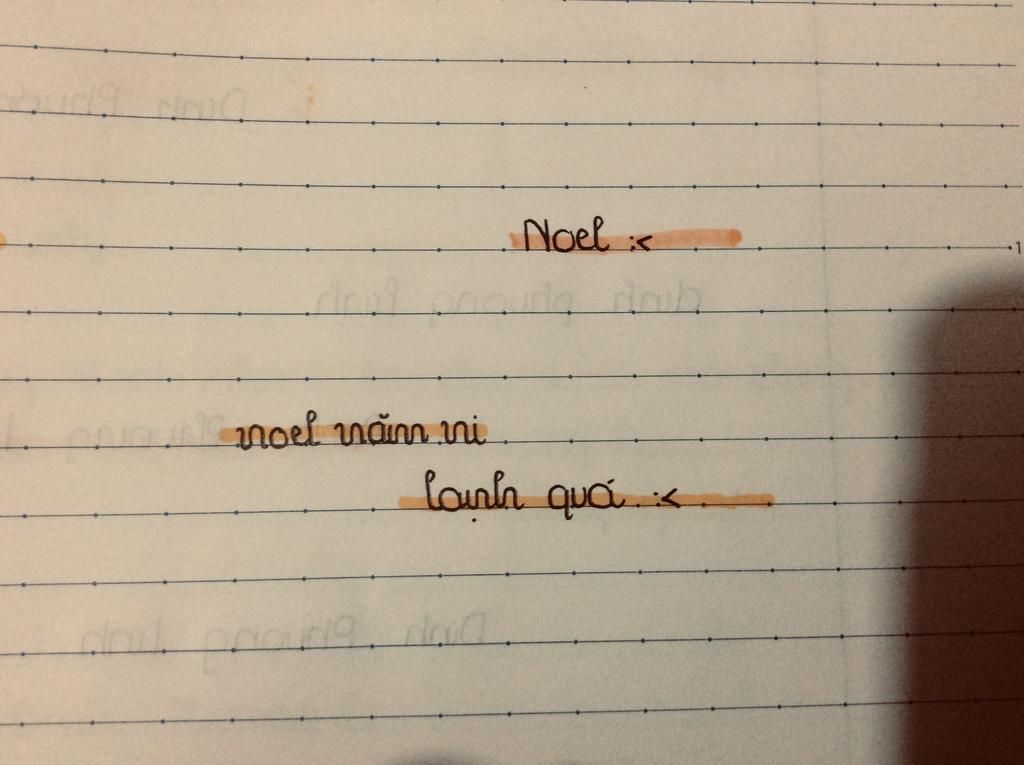 Noel :<
noel năm ni
lạnh quá :<